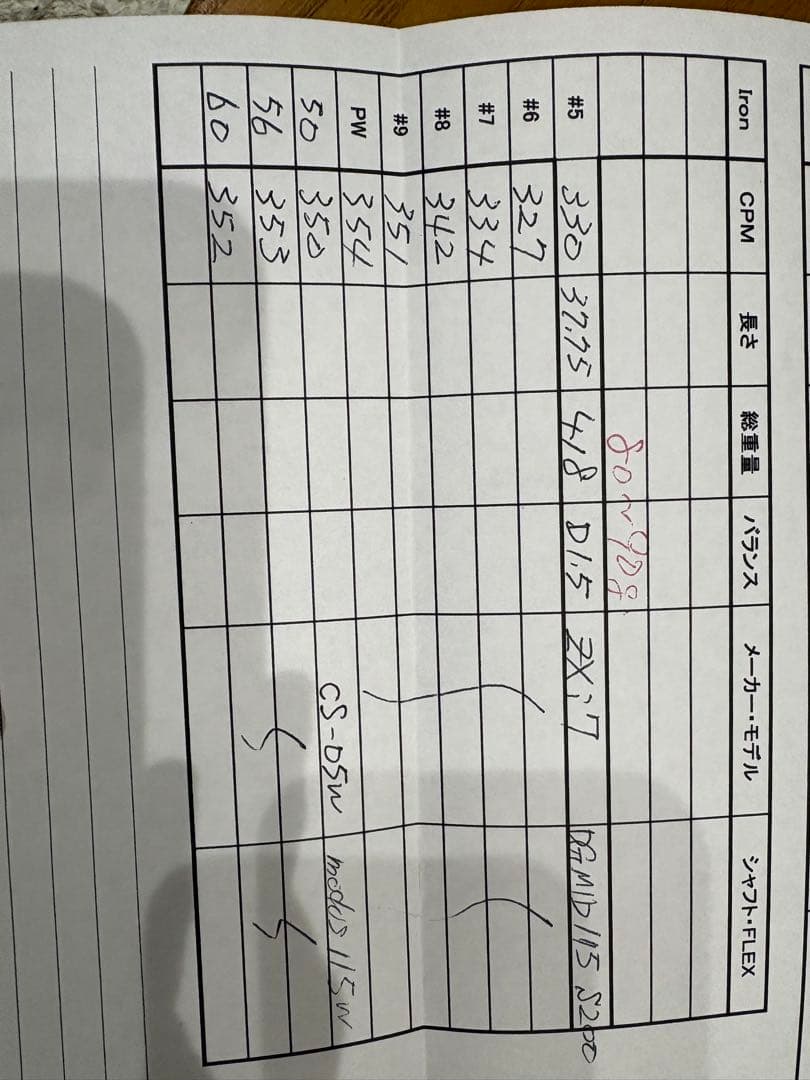 Iron CPM 長さ 総重量 バランス メーカー・モデル シャフト・FLEX
80~90g
#5 330 37.75 418 D1.5 ZXi7 DG MID 115 S200
#6 327
#7 334
#8 342
#9 351
PW 354
50 350 CS-05W modus 115w
56 353
60 352